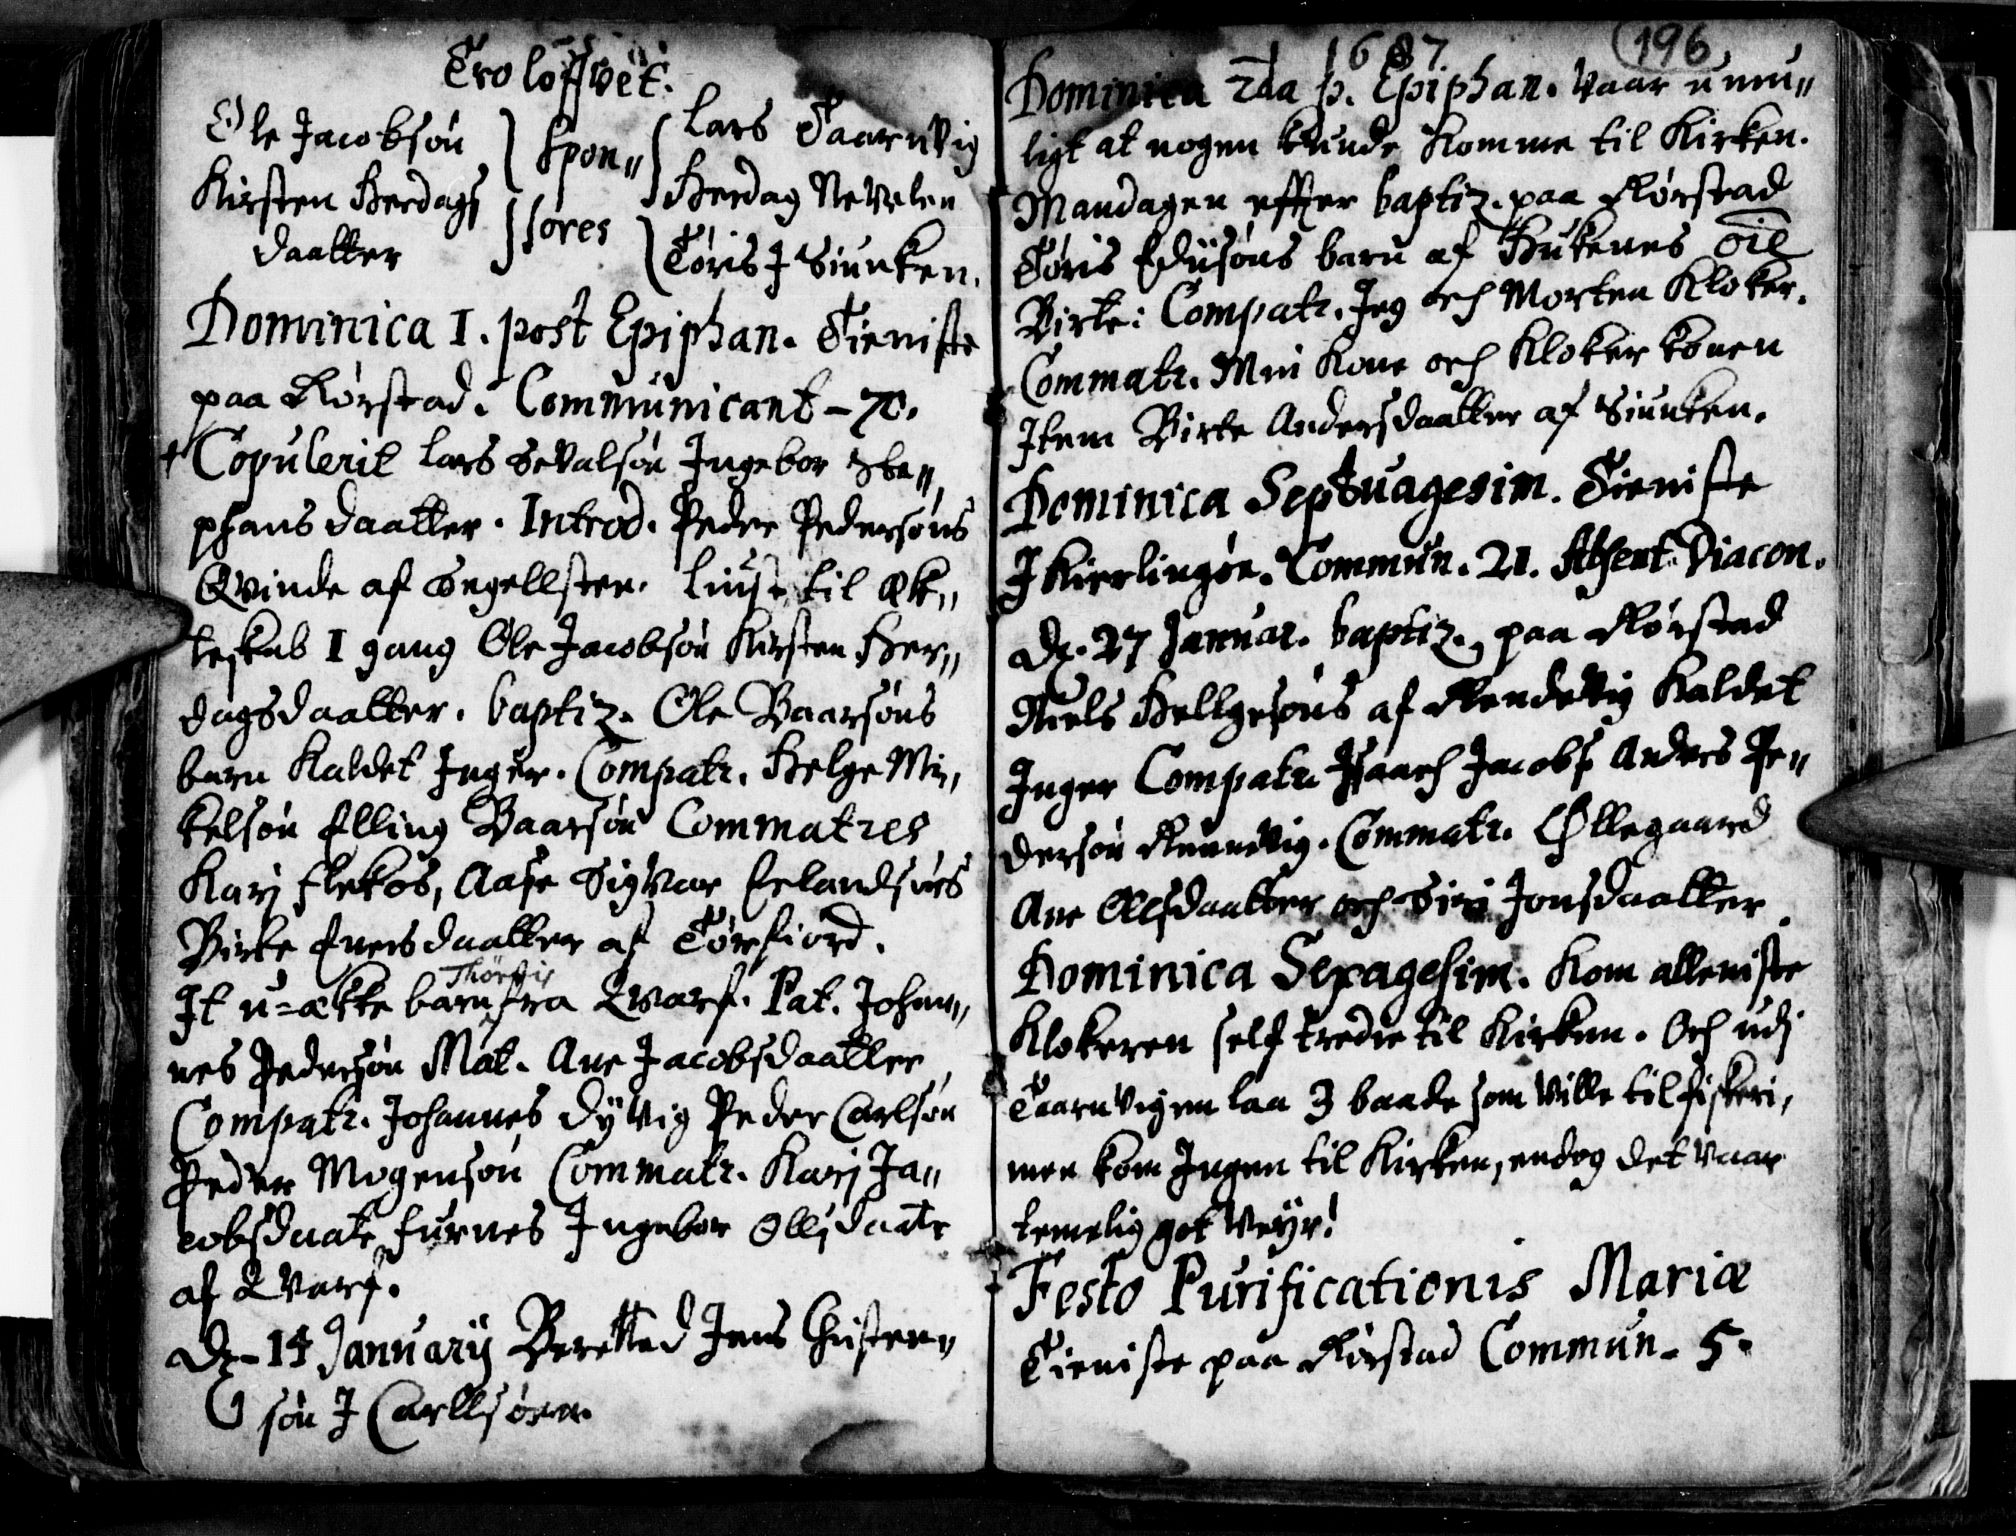 Troloffvet.
Ole Jacobsøn } Spon„ { Lars Taarnvig
Kirsten Herdags } sores { Herdag Nevelen
daatter Tøris J Siunken.
Dominica I. post Epiphan. Tieniste
paa Rørstad. Communicant – 70.
Copulerit Lars Sevalsøn Ingebor Ste„
phans daatter. Introd. Peder Pedersøns
Qvinde af Engellsten. Liust til Ek„
teskab I gang Ole Jacobsøn Kirsten Her„
dagsdaatter. baptiz. Ole Baarsøns
barn Kaldet Inger. Compatr. Helge Mi„
kelsøn Elling Baarsøn Commatres
Karj Flekos, Aase Sigvar Erlandsøns
Birte Eversdaatter af Tørfiord.
Thørris
It u=ækte barn fra Qvarf. Pat. Johan„
nes Pedersøn Mat. Ane Jacobsdaatter
Compatr. Johannes Dyvig Peder Carlsøn
Peder Mogensøn Commatr. Karj Ja„
cobsdaatr Furnes Ingebor Ollsdaatr
af Qvarf.
D. 14 Januarij Beretted Jens Christen„
søn J Carllsøen.
196
1687.
Dominica 2da p. Epiphan. Vaar umu„
ligt at nogen kunde Komme til Kirken.
Mandagen effter baptiz. paa Rørstad
Tøris Ediisøns barn af Hukenes
Birte: Compatr. Jeg och Morten Kloker.
Commatr. Min Kone och Kloker konen
Item Birte Andersdaatter af Siunken.
Dominica Septuagesim. Tieniste
J Kierlingøe. Commun. 21. Absent. Diacon.
D. 27 Januar. baptiz. paa Rørstad
Niels Hellgesøns af Rendevig Kaldet
Inger Compatr. Isaach Jacobs Anders Pe„
dersøn Runnevig. Commatr. Øllegaard
Ane Ollsdaatter och Siri Jonsdaatter
Dominica Sexagesim. Kom alleniste
Klokeren self tredie til Kirken. Och udj
Taarnvigen laa 3 baade som ville til fiskeri,
men kom Ingen til Kirken, endog det vaar
temelig got veyr!
Festo Purificationis Mariæ
Tieniste paa Rørstad Commun. 5.